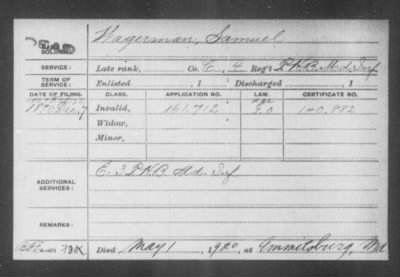 Wagerman, Samuel
SOLDIER
SERVICE: Late rank, Co. C, 4 Reg't P.H.B. Md. Inf.
TERM OF SERVICE: Enlisted , 1 Discharged , 1
DATE OF FILING. CLASS. APPLICATION NO. LAW. CERTIFICATE NO.
Invalid, 161,712
Widow,
Minor,
ADDITIONAL SERVICES: C. 3 P.H.B. Md. Inf
REMARKS:
Died May 1, 1920, at Emmitsburg, Md